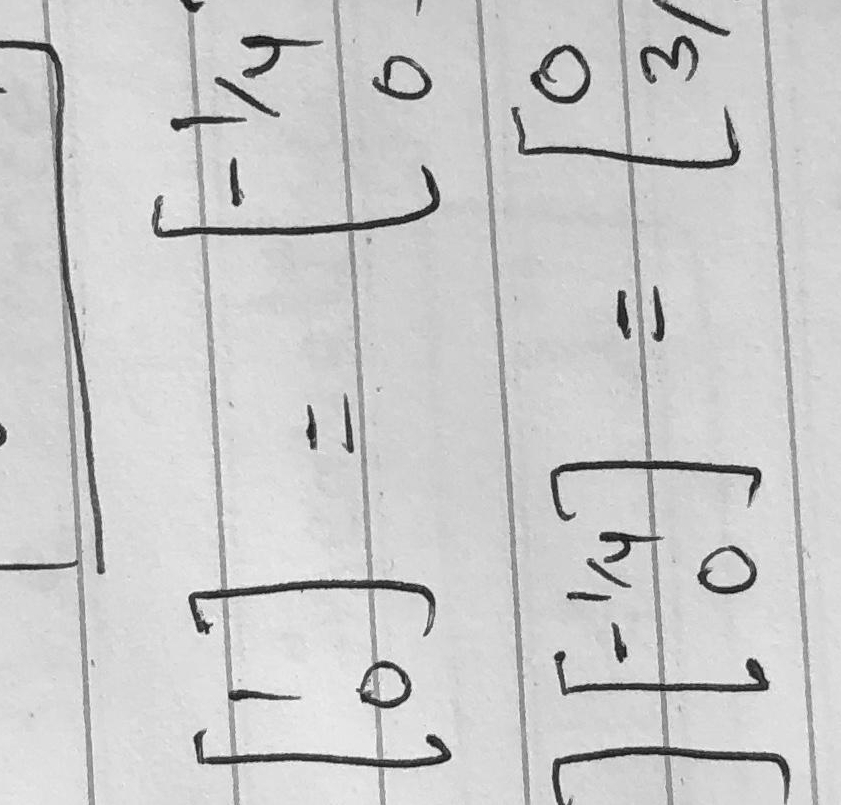 [ 1 ] = [ -1/4
0 0
] [ -1/4 ] = [ 0
0 3/